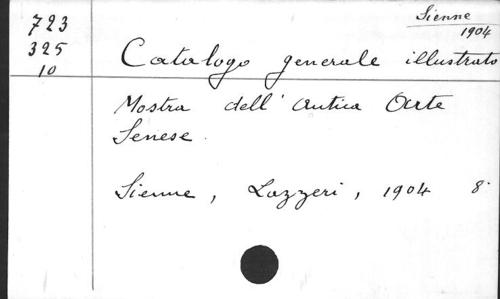 723
325
10
Sienne
1904
Catalogo generale illustrato
Mostra dell' antica Arte
Senese.
Sienne, Lazzeri, 1904 8°